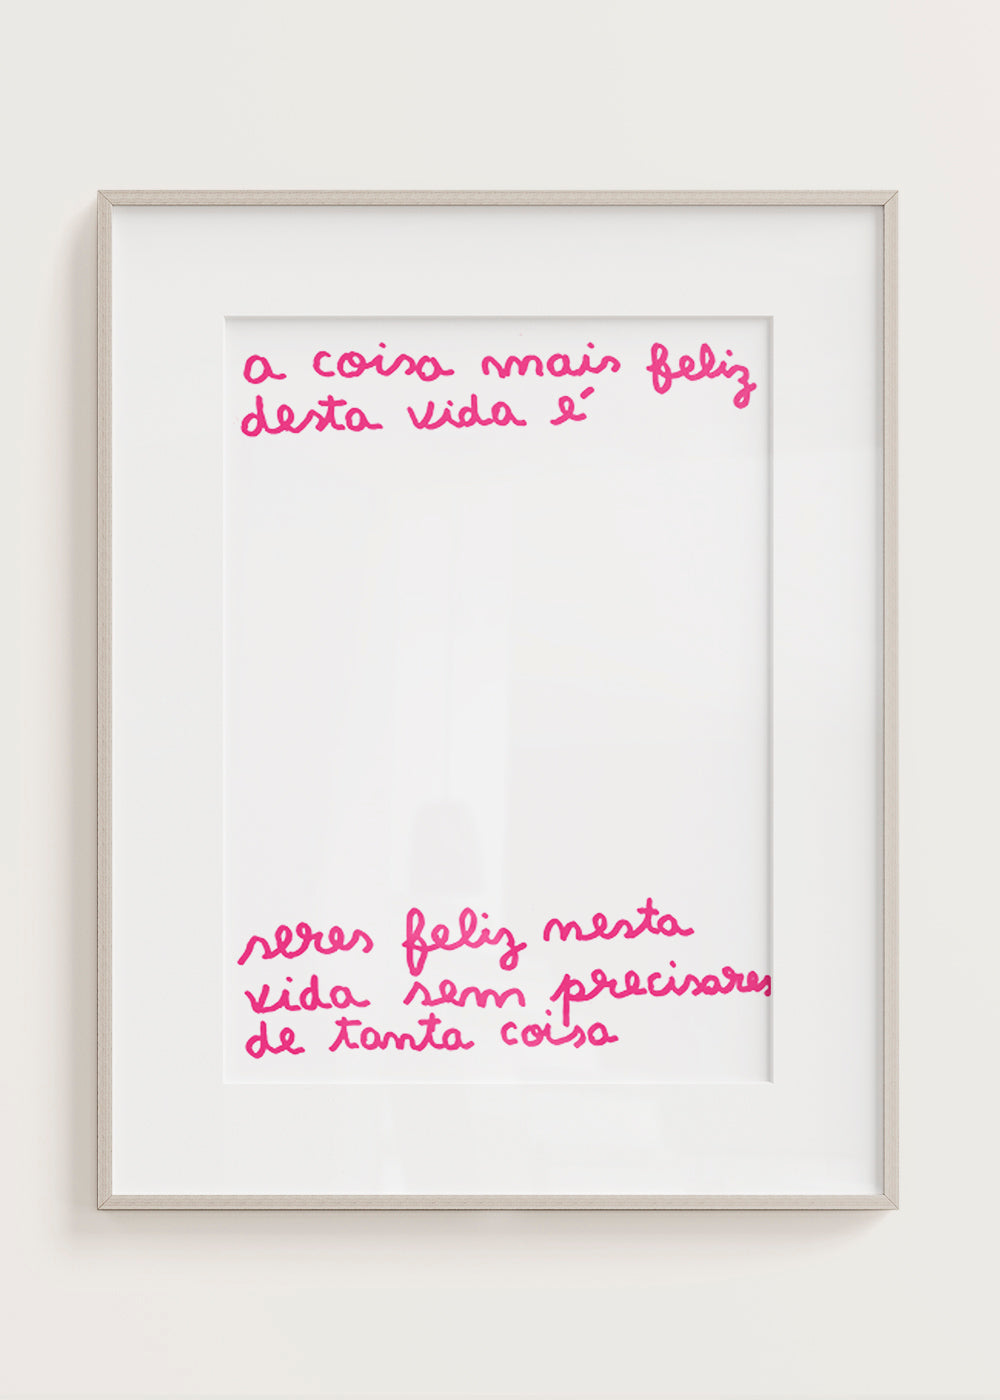 a coisa mais feliz
desta vida é
seres feliz nesta
vida sem precisares
de tanta coisa